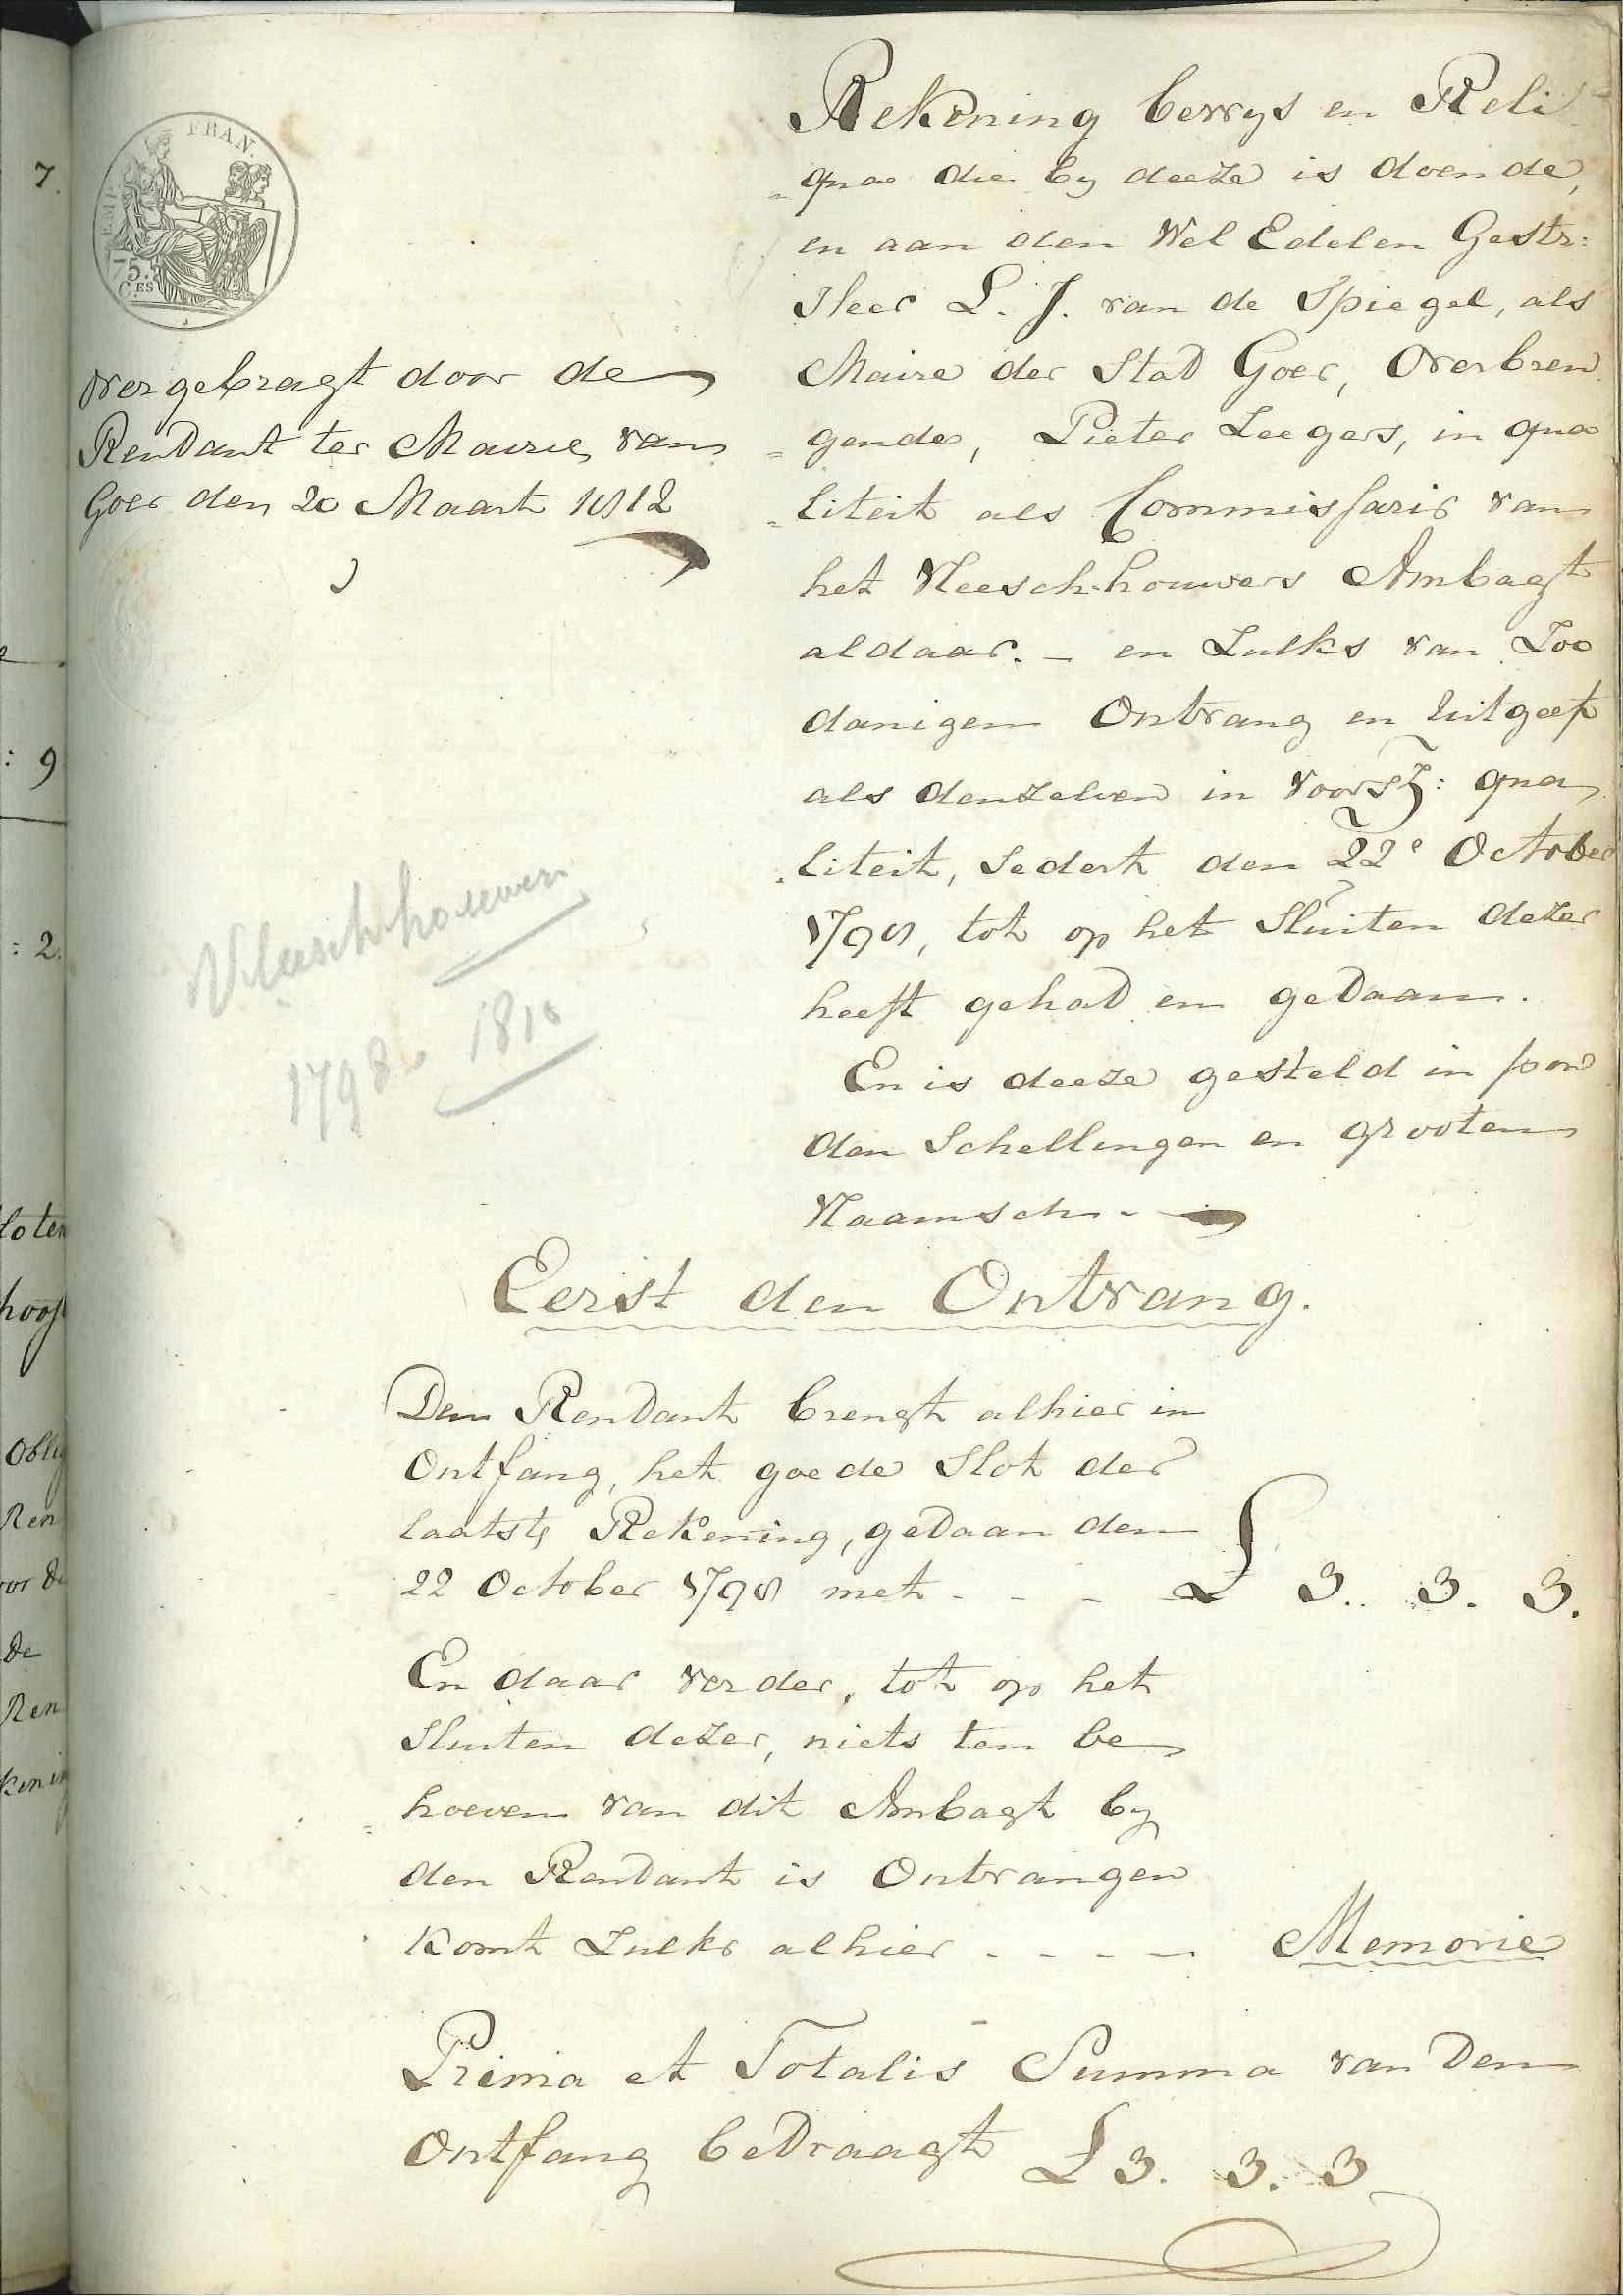 EMP. FRAN.
75.
C.ES
overgebragt door de
Rendant ter Mairie van
Goes den 20 Maart 1812
Vleeschhouwers
1798 - 1810
Rekening bewys en Reli
=qua die by deeze is doende,
en aan den Wel Edelen Gestr:
Heer L. J. van de Spiegel, als
Maire der Stad Goes, Overbren
=gende, Pieter Leegers, in qua
=liteit als Commissaris van
het Vleesch-houwers Ambagt
aldaar. - en Zulks van Zoo
danigen Ontvang en Uitgeeft
als denzelven in voorsz: qua
=liteit, Sedert den 22e October
1798, tot op het Sluiten dezer
heeft gehad en gedaan.
En is deeze gesteld in pon
den Schellingen en grooten
Vlaamsch. -
Eerst den Ontvang.
Den Rendant brengt alhier in
Ontfang, het goede Slot der
laatste Rekening, gedaan den
22 October 1798 met - - - £ 3. 3. 3.
En daar verder, tot op het
Sluiten dezer, niets ten be
=hoeven van dit Ambagt by
den Rendant is Ontvangen
komt Zulks alhier - - - - Memorie
Prima et Totalis Summa van den
Ontfang bedraagt £ 3. 3. 3
7.
: 9
: 2.
loten
hooft
Oblig
Ren
voor de
de
Ren
kenin